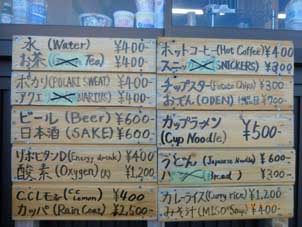 水 (Water) ¥400
お茶 (Tea) ¥400
ポカリ (POLAKI SWEAT) ¥400
アクエ ¥400
ビール (Beer) ¥600
日本酒 (SAKE) ¥600
リポビタンD (Energy drink) ¥400
酸素 (Oxygen) (K) ¥1,200
C.C.レモン (C.C Lemon) ¥400
カッパ (Rain Coat) ¥2,500-
ホットコーヒ (Hot Coffee) ¥400
スニッ SNICKERS) ¥300
チップスター (Potato Chips) ¥300
おでん (ODEN) ¥500
カップラーメン
(Cup Noodle) ¥500-
うどん (Japanese Noodle) ¥600
パ (Bread) ¥300
カレーライス (Curry rice) ¥1,200
みそ汁 (MISO Soup) ¥400